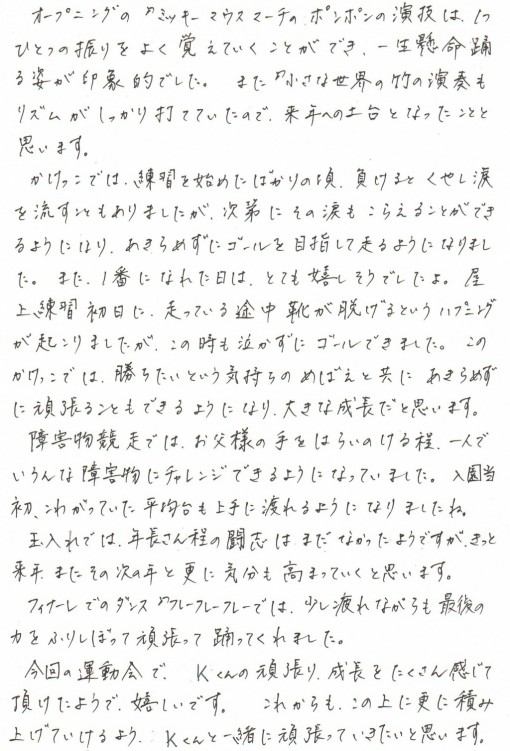 オープニングの〃ミッキーマウスマーチ〃、ポンポンの演技は、1つ
ひとつの振りをよく覚えていくことができ、一生懸命踊
る姿が印象的でした。 また〃小さな世界の竹の演奏も
リズムがしっかり打てていたので、来年への土台となったことと
思います。
かけっこでは、練習を始めたばかりの頃、負けるとくやし涙
を流すこともありましたが、次第にその涙もこらえることができ
るようになり、あきらめずにゴールを目指して走るようになりまし
た。また、1番になれた日は、とても嬉しそうでしたよ。屋
上練習初日に、走っている途中靴が脱げるというハプニング
が起こりましたが、この時も泣かずにゴールできました。この
かけっこでは、勝ちたいという気持ちのめばえと共にあきらめず
に頑張ることもできるようになり、大きな成長だと思います。
障害物競走では、お父様の手をはらいのける程、一人で
いろんな障害物にチャレンジできるようになっていました。入園当
初、こわがっていた平均台も上手に渡れるようになりましたね。
玉入れでは、年長さん程の闘志はまだなかったようですが、きっと
来年またその次の年と更に気分も高まっていくと思います。
フィナーレでのダンス〃フレーフレーフレーでは、少し疲れながらも最後の
力をふりしぼって頑張って踊ってくれました。
今回の運動会で、Kくんの頑張り、成長をたくさん感じて
頂けたようで、嬉しいです。 これからも、この上に更に積み
上げていけるよう、Kくんと一緒に頑張っていきたいと思います。